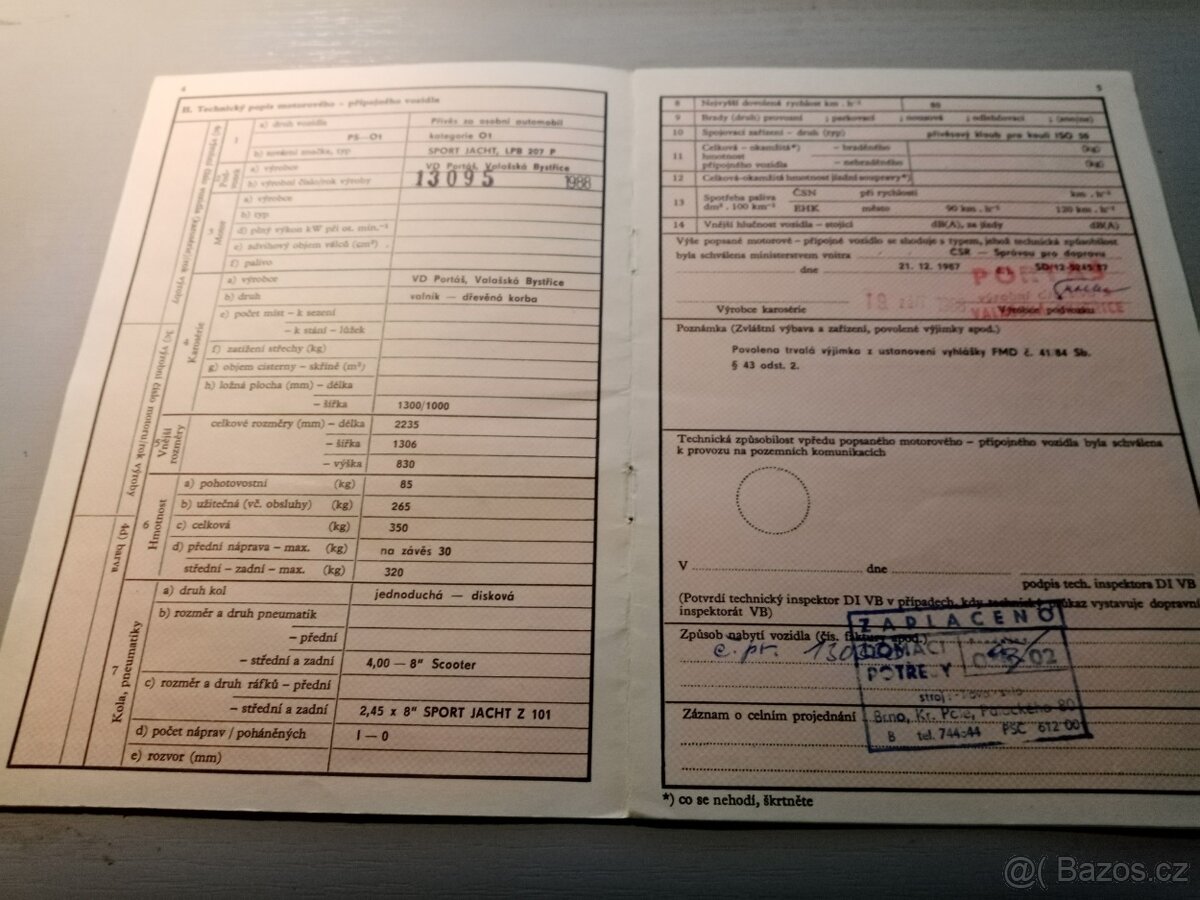 4
II. Technický popis motorového - přípojného vozidla
1 a) druh vozidla Přívěs za osobní automobil
PS-O1 kategorie O1
b) tovární značka, typ SPORT JACHT, LPB 207 P
2 a) výrobce VD Portáš, Valašská Bystřice
b) výrobní číslo/rok výroby 13095 1988
3 Motor a) výrobce
b) typ
d) plný výkon kW při ot. min.⁻¹
e) zdvihový objem válců (cm³)
f) palivo
4 Karosérie a) výrobce VD Portáš, Valašská Bystřice
b) druh valník — dřevěná korba
e) počet míst – k sezení
– k stání – lůžek
f) zatížení střechy (kg)
g) objem cisterny – skříně (m³)
h) ložná plocha (mm) – délka
– šířka 1300/1000
5 Vnější rozměry celkové rozměry (mm) – délka 2235
– šířka 1306
– výška 830
6 Hmotnost a) pohotovostní (kg) 85
b) užitečná (vč. obsluhy) (kg) 265
c) celková (kg) 350
d) přední náprava – max. (kg) na závěs 30
střední – zadní – max. (kg) 320
7 Kola, pneumatiky a) druh kol jednoduchá — disková
b) rozměr a druh pneumatik
– přední
– střední a zadní 4,00 — 8" Scooter
c) rozměr a druh ráfků – přední
– střední a zadní 2,45 x 8" SPORT JACHT Z 101
d) počet náprav / poháněných 1 — 0
e) rozvor (mm)
3c) výrobní číslo motoru/rok výroby
4d) barva
5
8 Nejvyšší dovolená rychlost km . h⁻¹ 80
9 Brzdy (druh) provozní ; parkovací ; nouzová ; odlehčovací ; (ano/ne)
10 Spojovací zařízení – druh (typ) přívěsový kloub pro kouli ISO 50
11 Celková – okamžitá*) – brzděného (kg)
hmotnost
přípojného vozidla – nebrzděného (kg)
12 Celková-okamžitá hmotnost jízdní soupravy*)
13 Spotřeba paliva ČSN při rychlosti km . h⁻¹
dm³ . 100 km⁻¹ EHK město 90 km . h⁻¹ 120 km . h⁻¹
14 Vnější hlučnost vozidla – stojící dB(A), za jízdy dB(A)
Výše popsané motorové – přípojné vozidlo se shoduje s typem, jehož technická způsobilost
byla schválena ministerstvem vnitra ČSR — Správou pro dopravu
dne 21. 12. 1987
Výrobce karosérie Výrobce podvozku
Poznámka (Zvláštní výbava a zařízení, povolené výjimky apod.)
Povolena trvalá výjimka z ustanovení vyhlášky FMD č. 41/84 Sb.
§ 43 odst. 2.
Technická způsobilost vpředu popsaného motorového – přípojného vozidla byla schválena
k provozu na pozemních komunikacích
V dne
podpis tech. inspektora DI VB
(Potvrdí technický inspektor DI VB v případech, kdy technický průkaz vystavuje dopravní
inspektorát VB)
ZAPLACENO
Způsob nabytí vozidla (čís. faktury apod.)
DOMÁCÍ
POTŘEBY
Záznam o celním projednání
Brno, Kr. Pole, Palackého 80
8 tel. 74444 PSČ 612 00
*) co se nehodí, škrtněte
@( Bazos.cz